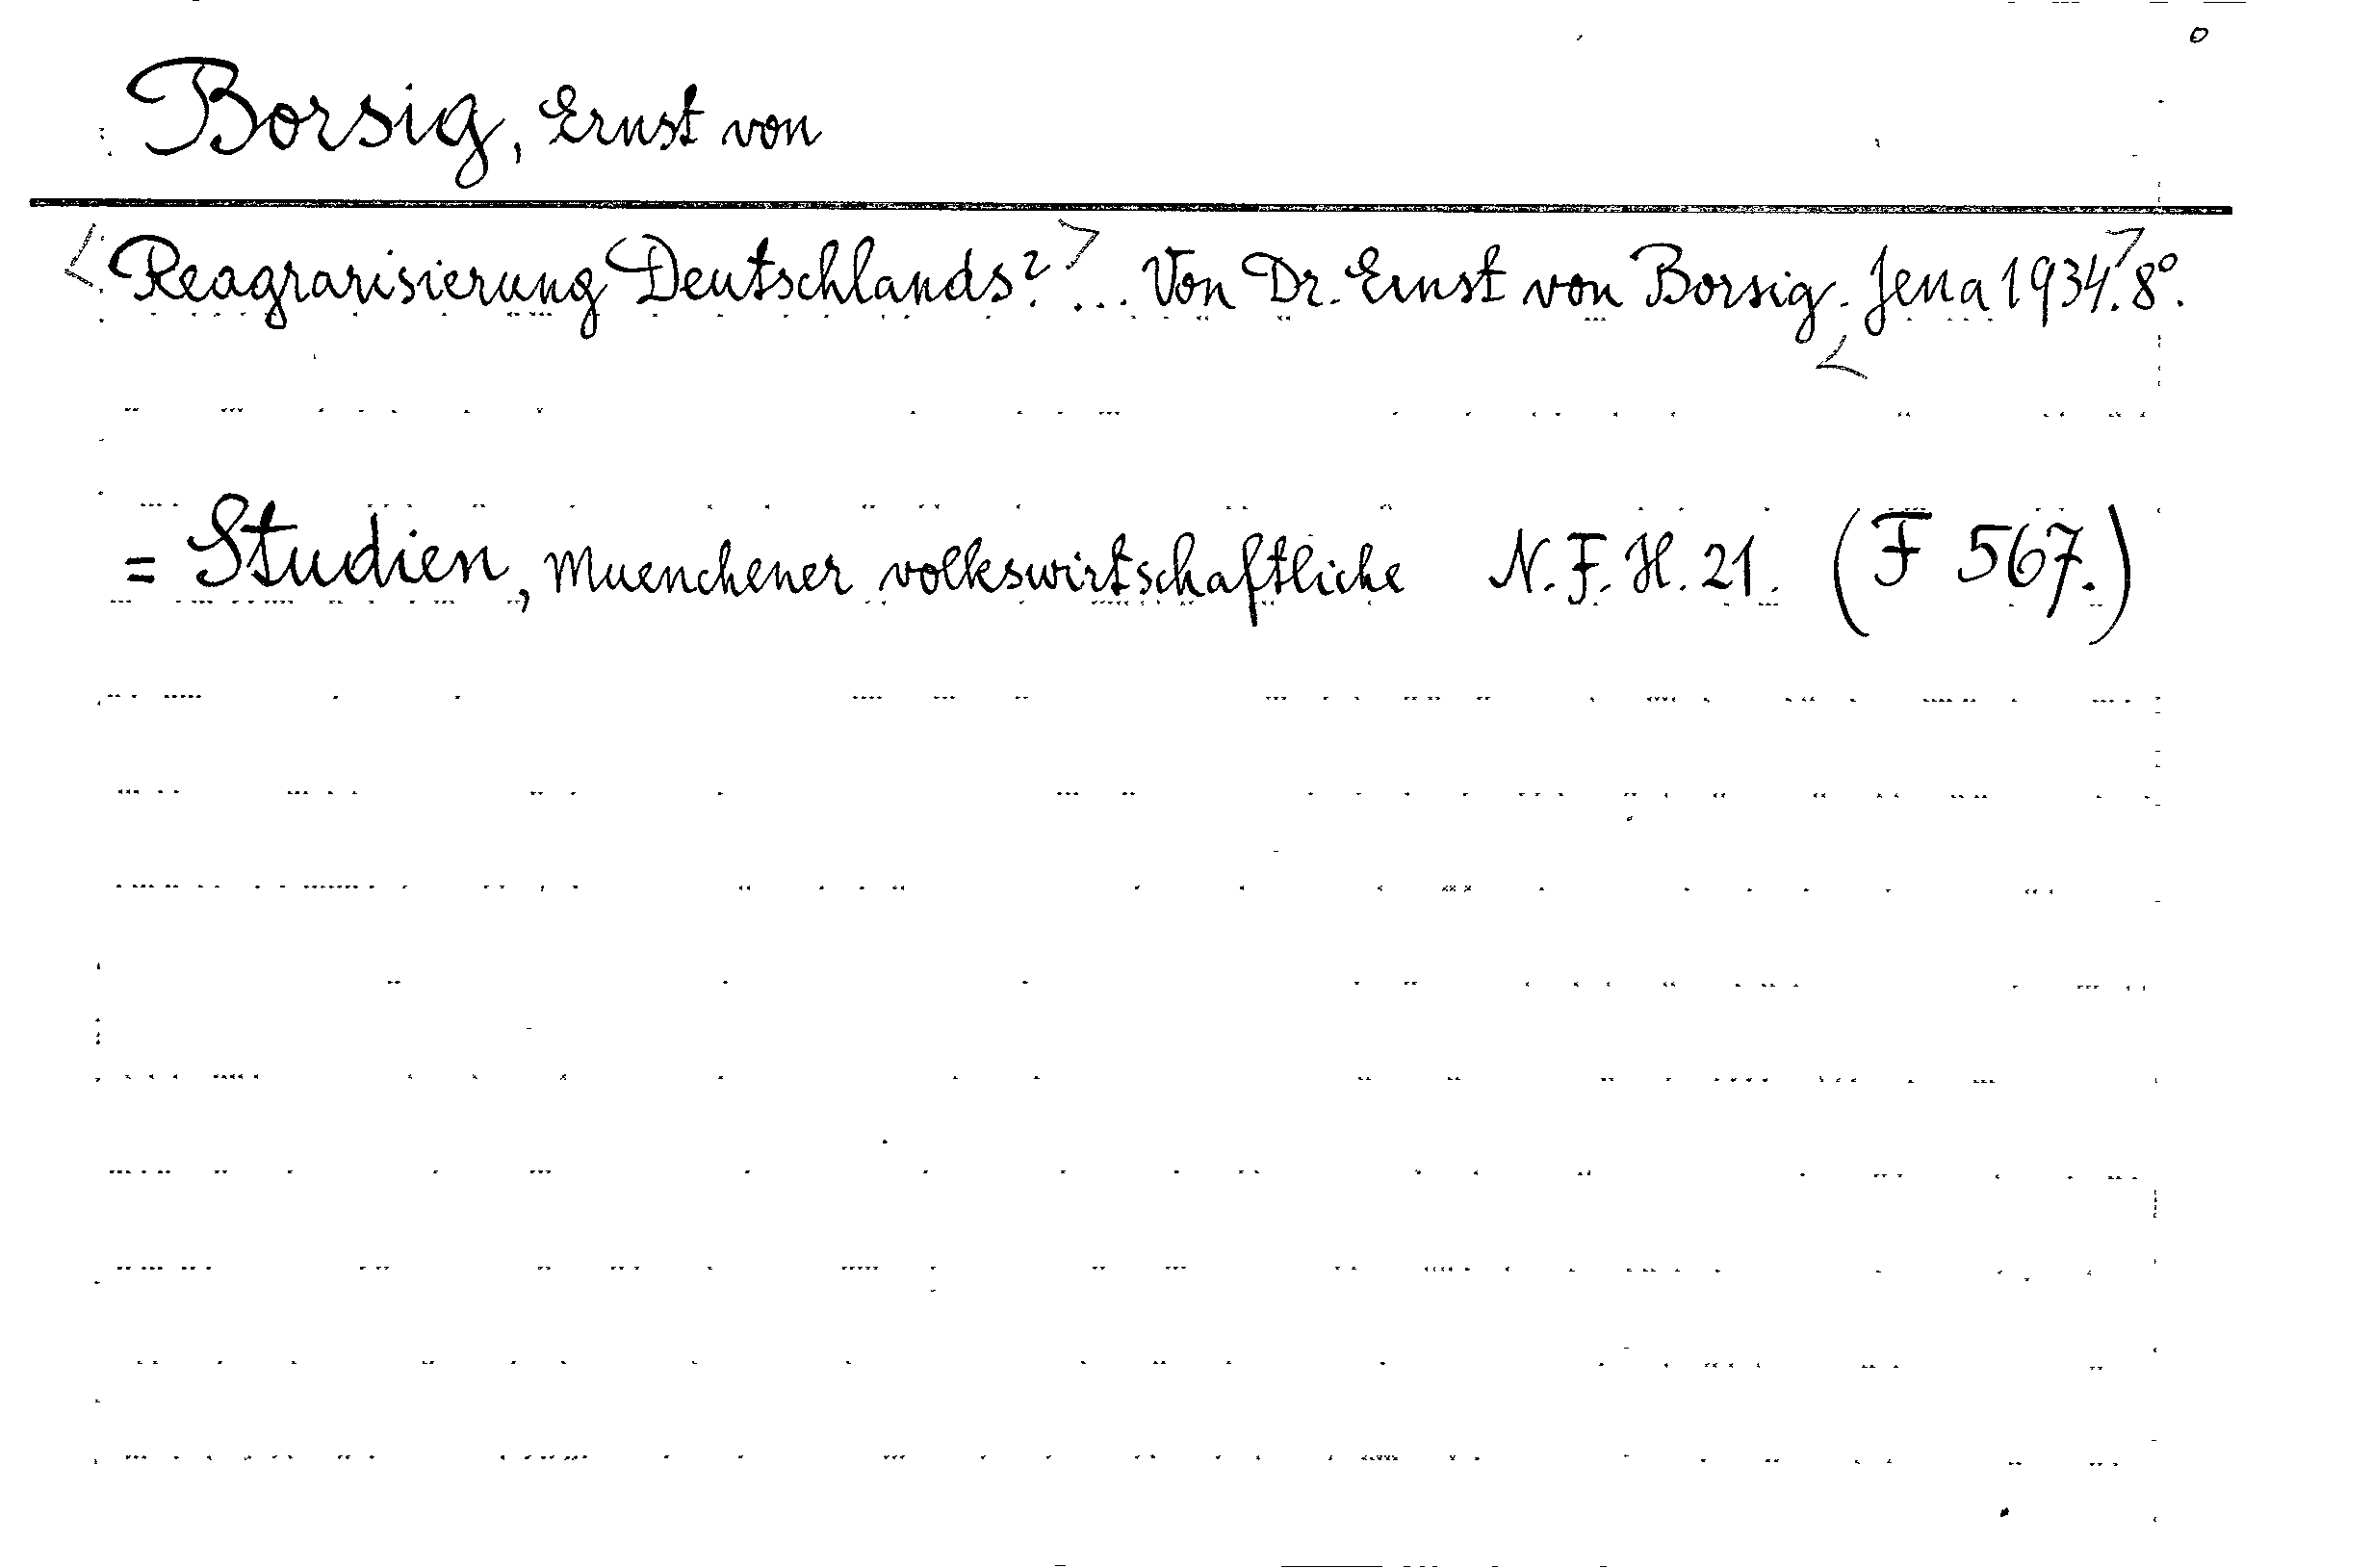 Borsig, Ernst von
<Reagrarisierung Deutschlands?>... Von Dr. Ernst von Borsig. <Jena 1934.> 8°.
= Studien, Muenchener volkswirtschaftliche N. F. H. 21. (F 567.)